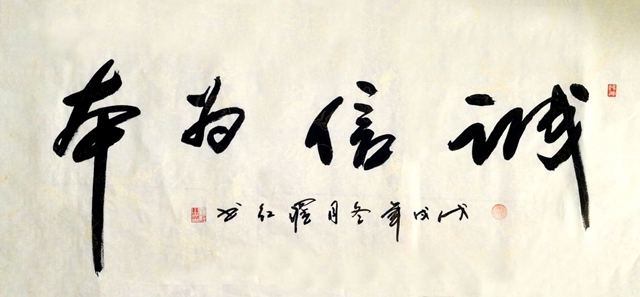 诚信为本
戊戌年冬月红书